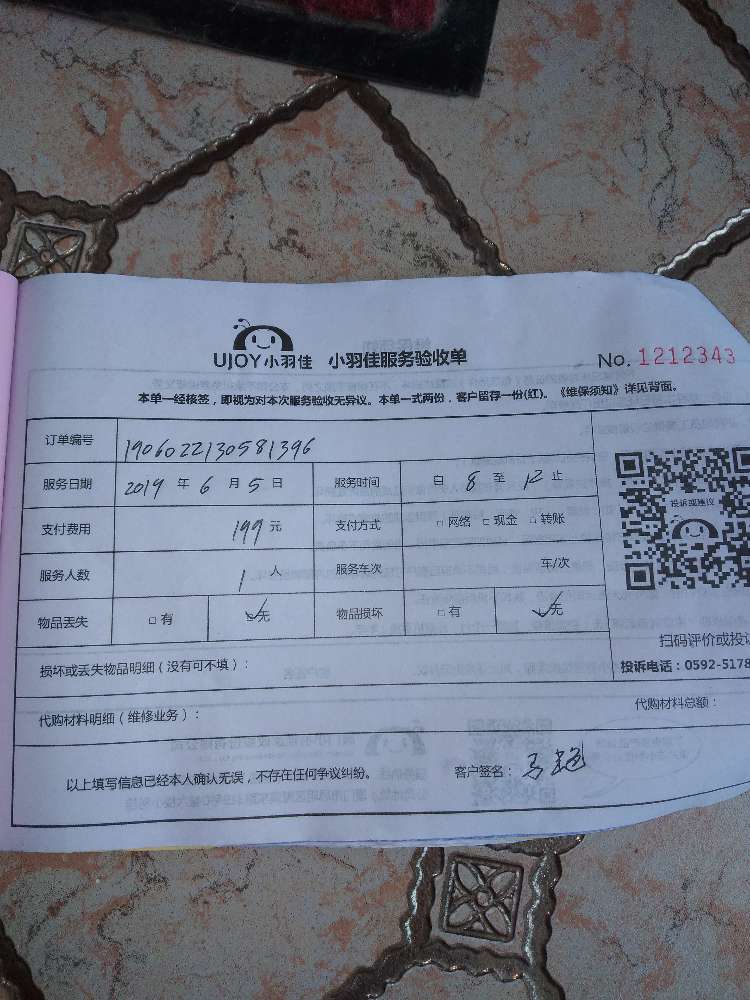 UJOY小羽佳 小羽佳服务验收单 No. 1212343
本单一经核签，即视为对本次服务验收无异议。本单一式两份，客户留存一份(红)。《维保须知》详见背面。
订单编号 1906022130581396
服务日期 2019 年 6 月 5 日 服务时间 自 8 至 12 止
支付费用 199 元 支付方式 □ 网络 □ 现金 □ 转账
服务人数 1 人 服务车次 车/次
物品丢失 □ 有 ☑ 无 物品损坏 □ 有 ☑ 无
投诉或建议
扫码评价或投
投诉电话：0592-5178
损坏或丢失物品明细（没有可不填）：
代购材料明细（维修业务）： 代购材料总额：
以上填写信息已经本人确认无误，不存在任何争议纠纷。 客户签名：